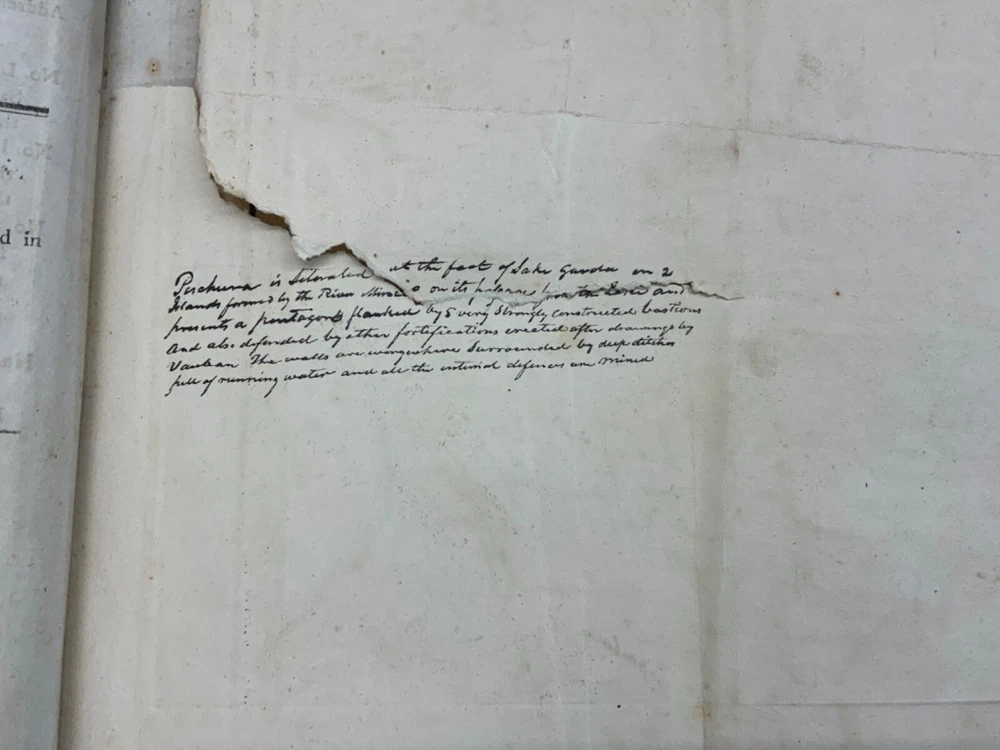 d in
Peschiera is Situated at the foot of Lake Garda on 2
Islands formed by the River Mincio on its from the Lake and
presents a pentagon flanked by 5 very Strongly constructed bastions
and also defended by other fortifications erected after drawings by
Vauban The walls are everywhere Surrounded by deep ditches
full of running water and all the internal defences are mined